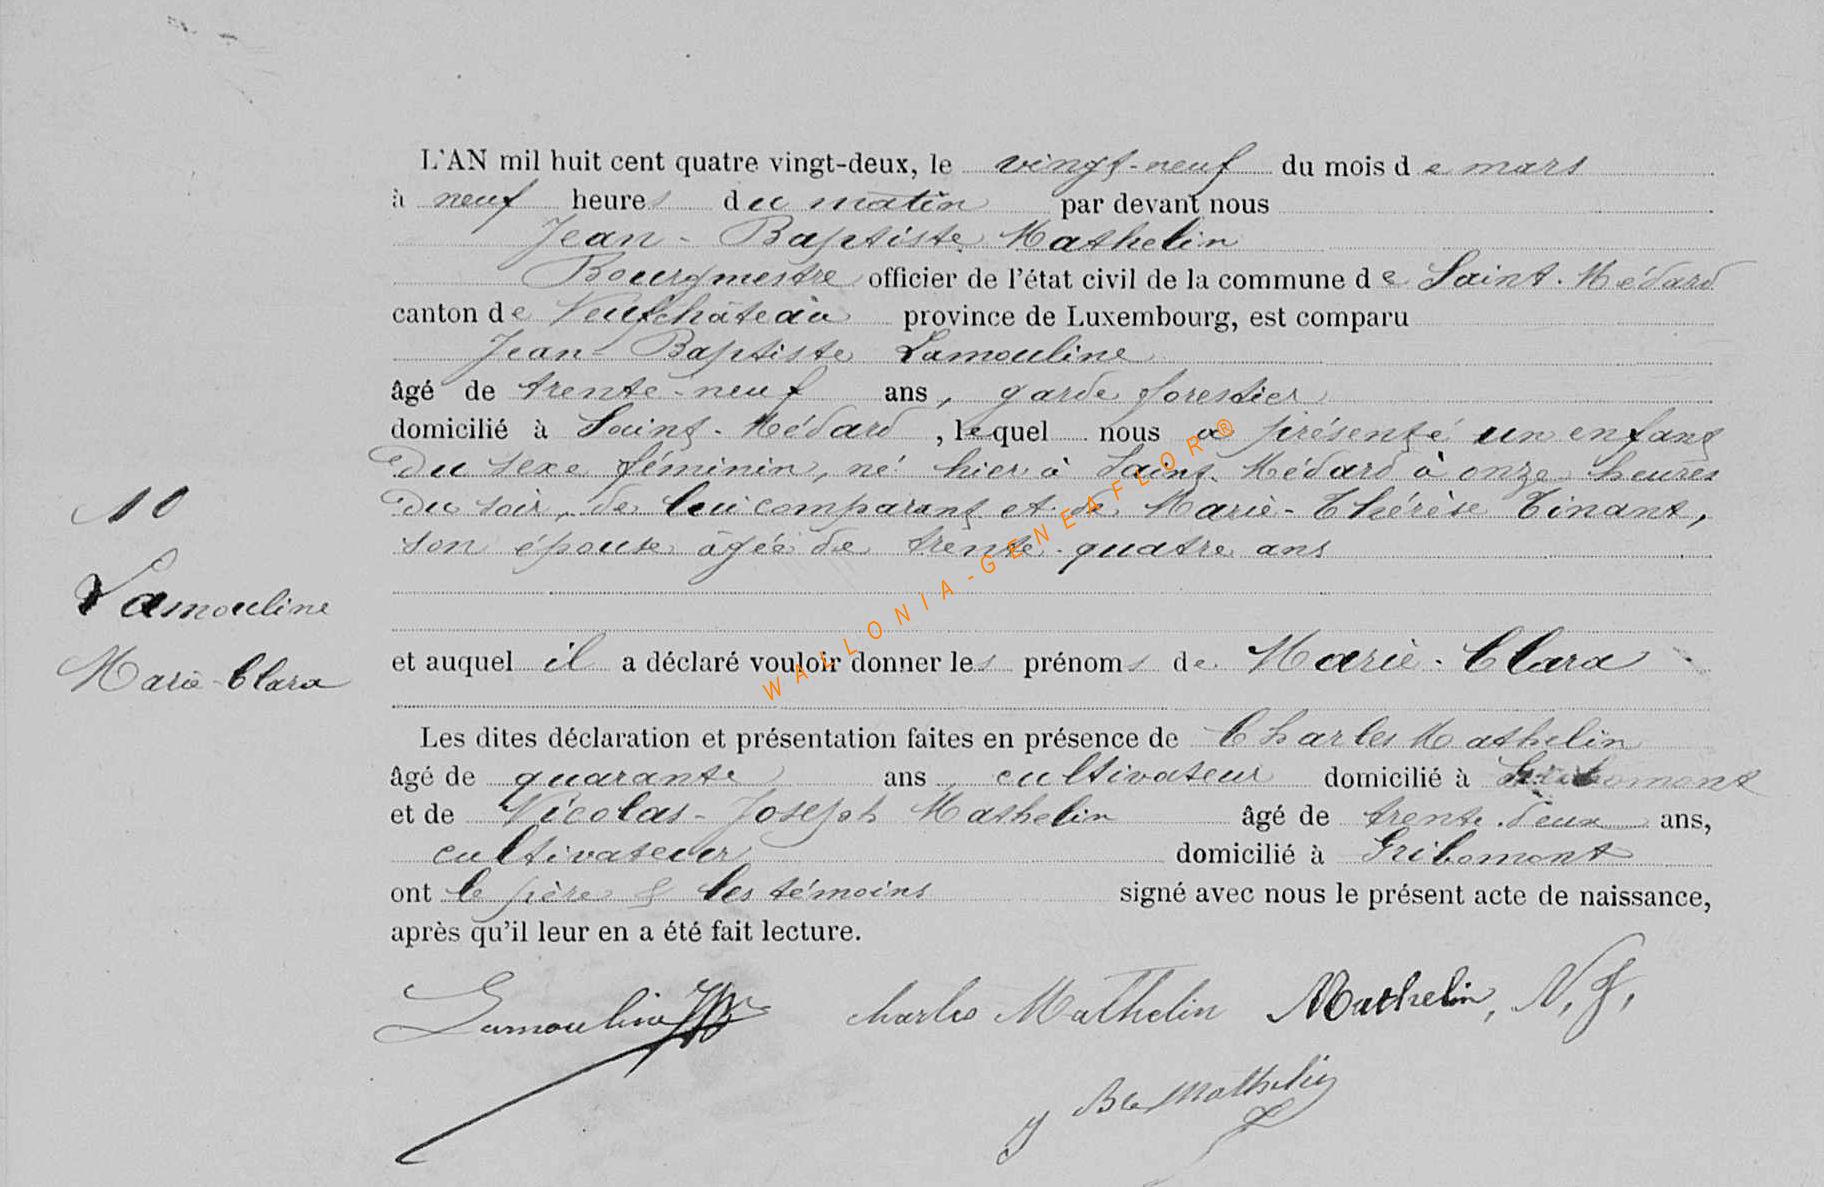 L'AN mil huit cent quatre vingt-deux, le vingt-neuf du mois de mars
à neuf heures du matin par devant nous
Jean-Baptiste Mathelin
Bourgmestre officier de l'état civil de la commune de Saint-Médard
canton de Neufchâteau province de Luxembourg, est comparu
Jean-Baptiste Lamouline
âgé de trente-neuf ans, garde forestier
domicilié à Saint-Médard, lequel nous a présenté un enfant
du sexe féminin, né hier à Saint-Médard à onze heures
du soir, de lui comparant et de Marie-Thérèse Tinant,
son épouse âgée de trente-quatre ans
10
Lamouline
Marie-Clara
et auquel il a déclaré vouloir donner les prénoms de Marie-Clara
Les dites déclaration et présentation faites en présence de Charles Mathelin
âgé de quarante ans cultivateur domicilié à
et de Nicolas-Joseph Mathelin âgé de trente-deux ans,
cultivateur domicilié à Gribomont
ont le père & les témoins signé avec nous le présent acte de naissance,
après qu'il leur en a été fait lecture.
Lamouline Charles Mathelin Mathelin, N. J.
J Bte Mathelin
WALLONIA-GENEAFLOR®